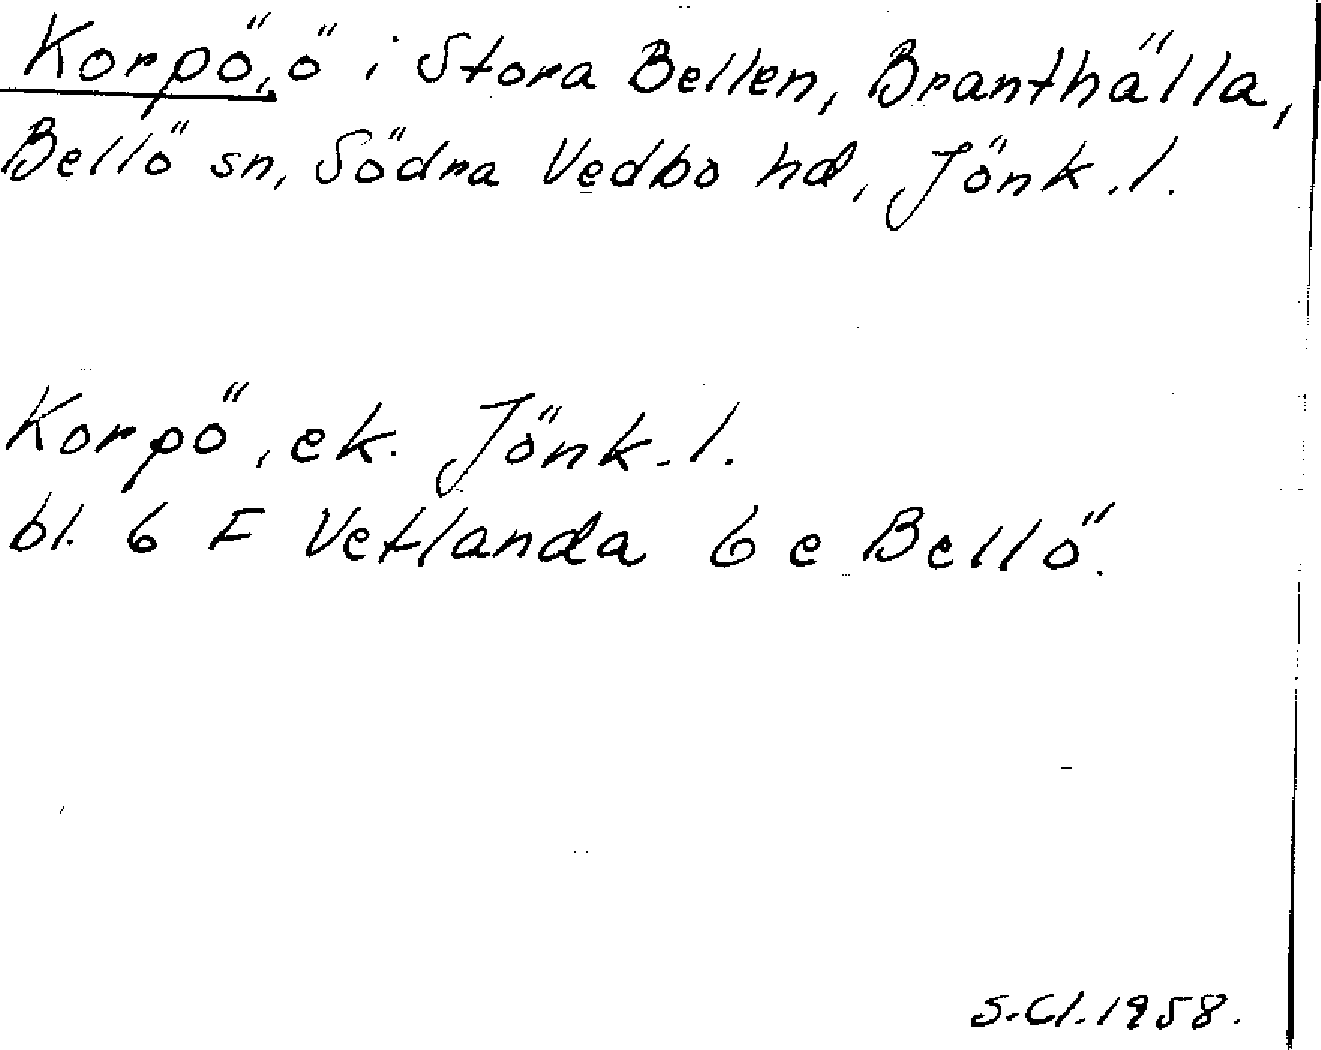 Korpö, ö i Stora Bellen, Branthälla,
Bellö sn, Södra Vedbo hd, Jönk.l.
Korpö, ek. Jönk.l.
bl. 6 F Vetlanda 6 e Bellö.
S.Cl.1958.